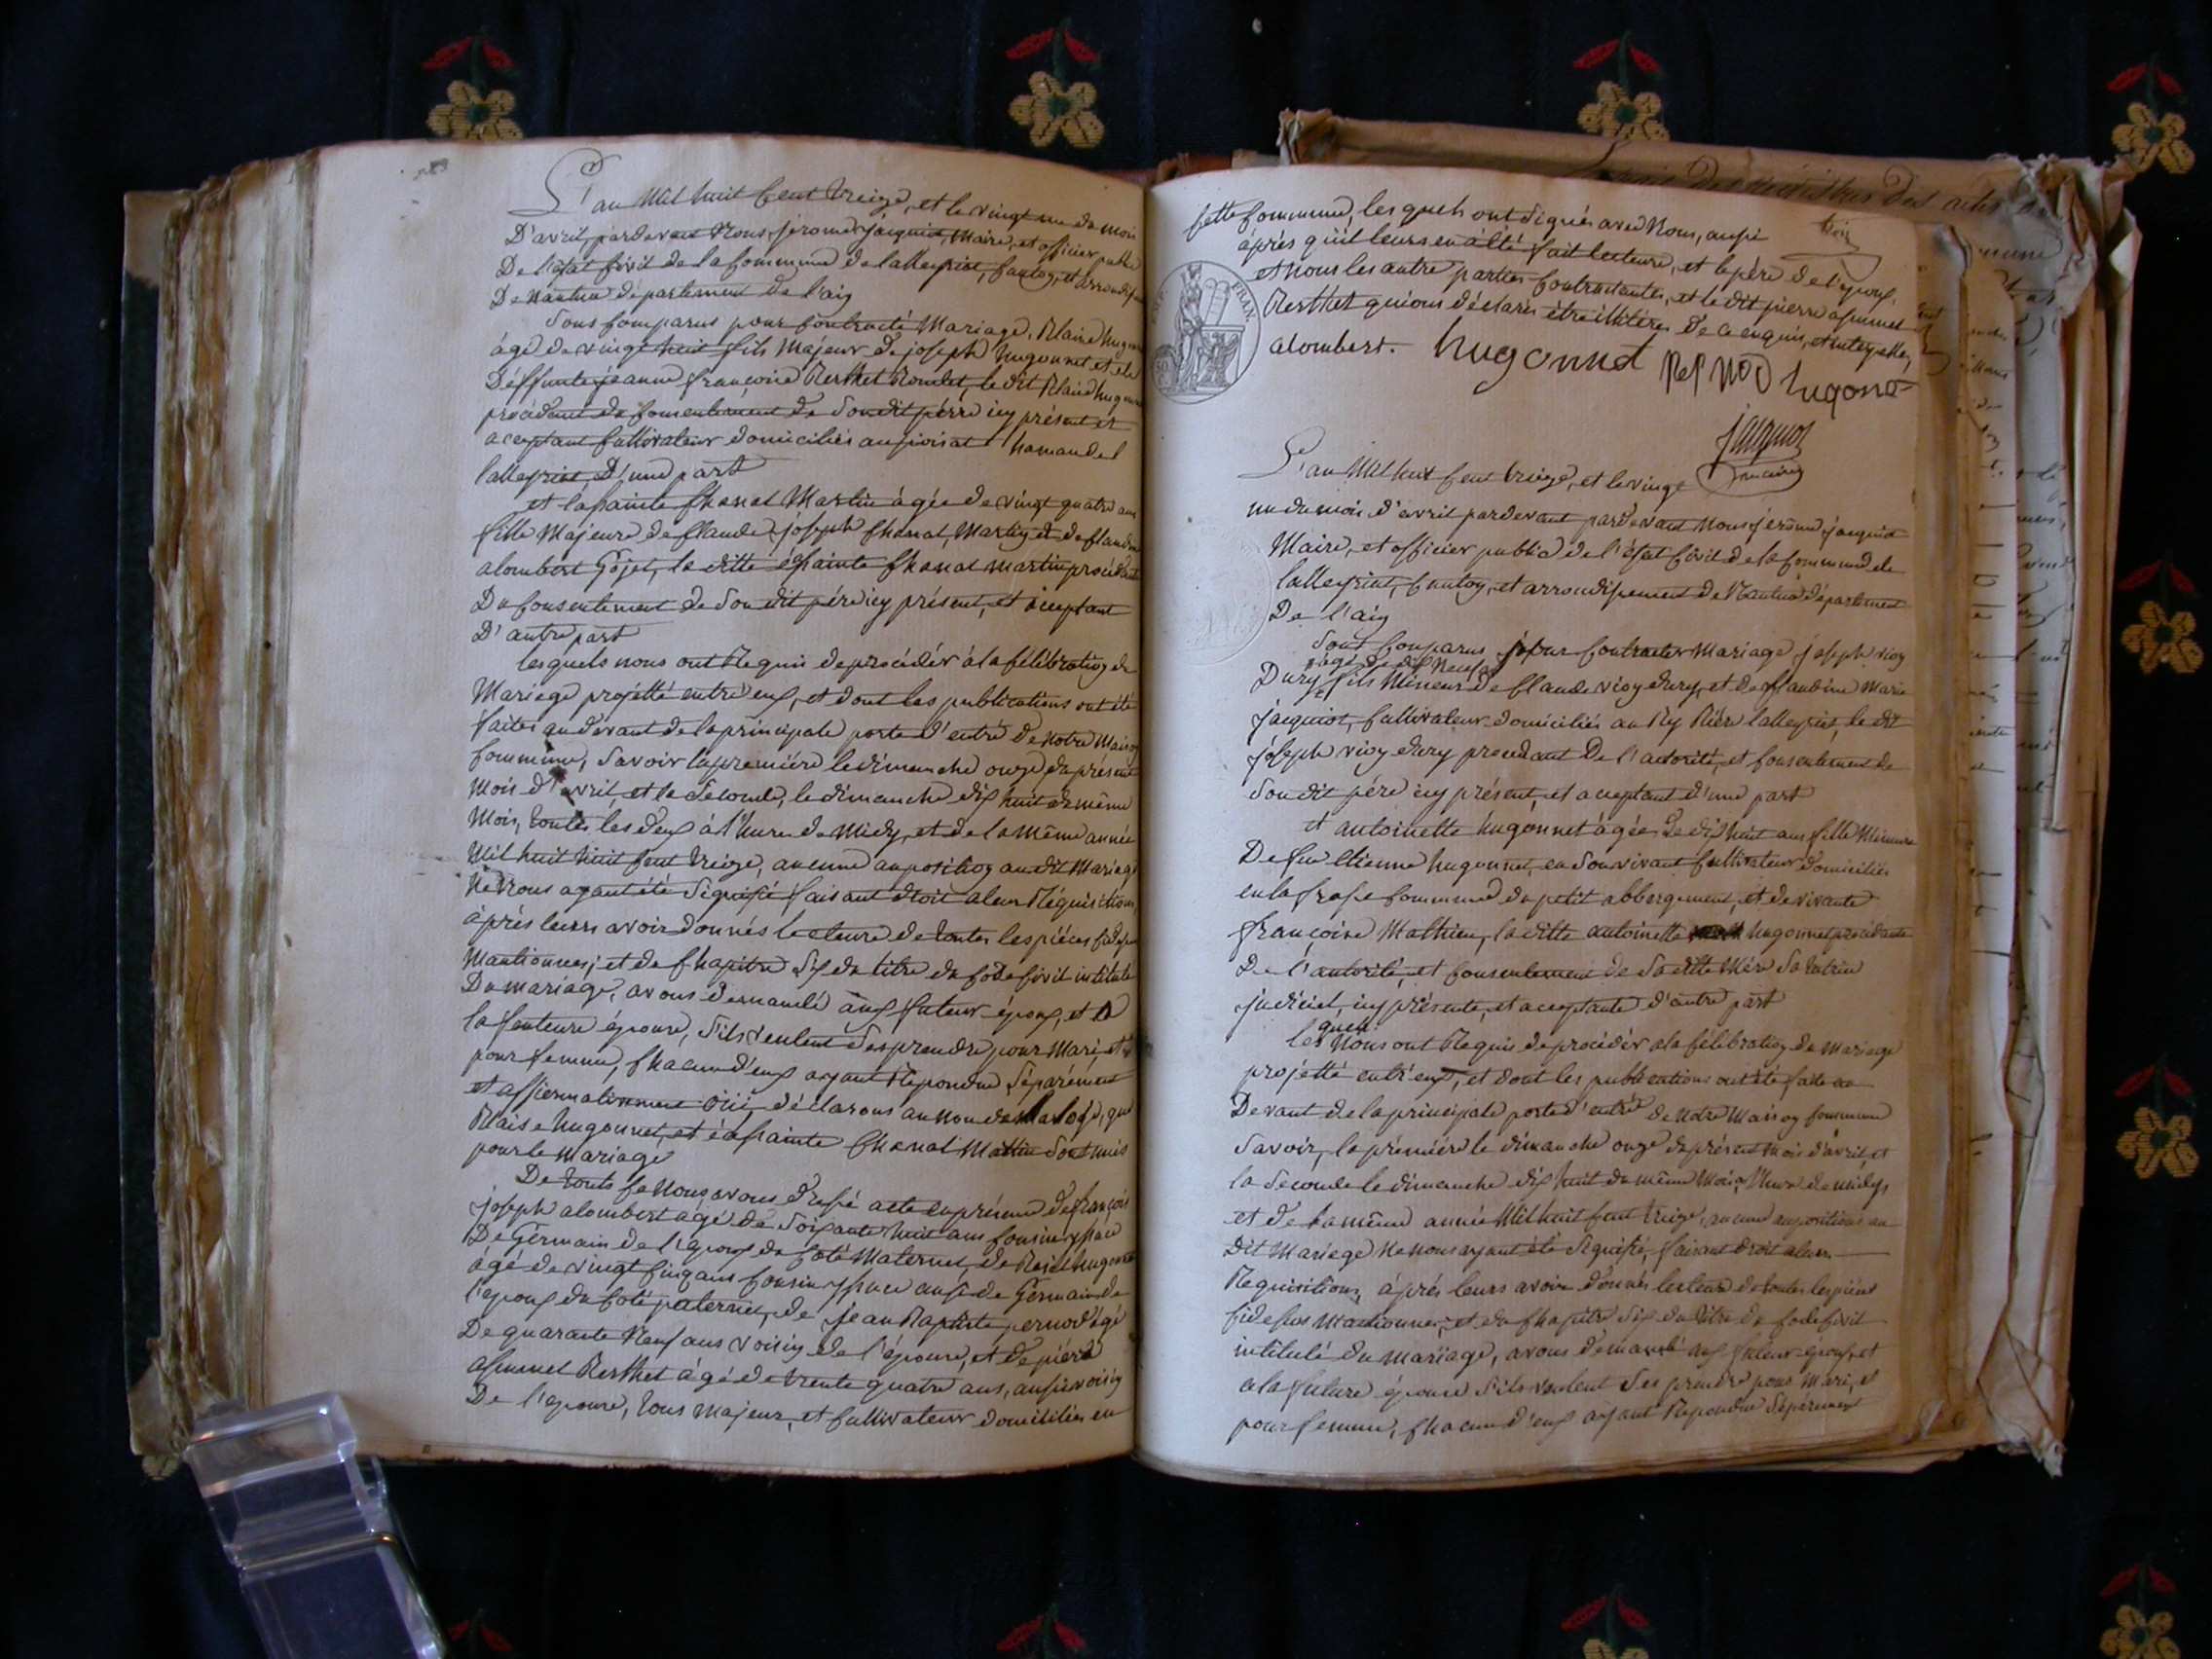 L'an Mil huit Cent treize, et le vingt un du mois
D'avril, pardevant Nous, jerome jacquiot, Maire, et officier public
De l'état Civil de la Commune de lalleyriat, Canton, et arrondis
De Nantua département de l'ain
Sont Comparus pour Contracté Mariage, Blaise hugonnet
agé de vingt huit fils Majeur de joseph hugonnet et de
Déffunte jeanne françoise Berthet Rondet, le dit Blaise hugonnet
procédant du Consentement de Son dit pére icy présent et
aceptant Cultivateur domiciliés au hamaud de
lalleyriat, D'une part
et Epainte Chanal Martin agée de vingt quatre ans
fille Majeure de Claude joseph Chanal, Martin et de Claudine
alombert Gojet, la ditte épainte Chanal martin procédante
Du Consentement de Son dit pére icy présent, et aceptant
D'autre part
lesquels nous ont Requis de procédér à la Célébration de
Mariage projetté entre eux, et dont les publications ont été
faites au devant de la principale porte d'entré de notre Maison
Commune, Savoir la premiére le dimanche onze du présent
Mois d'avril, et la Seconde, le dimanche dix huit du même
Mois, toutes les deux à l'hure de Midy, et de la Même année
Mil huit huit Cent treize, aucune auposition au dit Mariage
Ne Nous ayant été Signifié faisant droit a leur Réquisitions,
áprés leurs avoir donnés lecture de toutes les piéces Cidessus
Mantionnees; et du Chapitre Six du titre du Code Civil intitulé
Du mariage, avons demandé aux futeur époux, et a
la feuteure épouse, S'ils veulent Se prendre pour Mari, et
pour femme, Chacun d'eux ayant Repondue Séparément
et affirmativement oüi, déclarons au Nom de la loix, que
Blaise hugonnet, et épainte Chanal Martin Sont unis
pour le Mariage
De touts Ce Nous avons dressé acte en présence de françois
joseph alombert agé de Soixante huit ans Cousin yssue
De Germain de l'époux du Coté Maternel, de hugonnet
ágé de vingt Cinq ans Cousin yssue aussi de Germain de
l'époux du Coté paternel, de jean Baptiste pernod agé
De quarante Neuf ans voisin de l'épouse, et de piérre
assumel Berthet ágé de trente quatre ans, aussi voisin
De l'épouse, tous Majeur, et Cultivateur domiciliés en
Cette Commune, les quels ont Signés avec Nous, aussi
áprés quil leurs en a été fait lecteure, et le pére de l'époux,
et Nous les autre parties Contractantes, et le dit pierre assumel
Berthet quions déclarés être illitéres De ce enquis, et interpellés,
alombert. hugonnet hugonet
jacquiot
maire
L'an Mil huit Cent treize, et le vingt
un du mois d'avril pardevant pardevant Nous jérôme jacquiot
Maire, et officier public de l'état Civil de la Commune de
lalleyriat, Canton, et arrondissement de Nantua département
De l'ain
Sont Comparus pour Contracter Mariage joseph vion
agé de dix Neuf ans
Dury, fils Mineur de Claude vion dury, et de Claudine Marie
jacquiot, Cultivateur domiciliés au Riére lalleyriat, le dit
joseph vion dury procédant De l'autorité, et Consentement de
Son dit pére icy présent, et aceptant d'une part
et antoinette hugonnet ágée De dix huit ans fille Mineure
De feu Etienne hugonnet, en Son vivant Cultivateur domiciliés
en la Commune du petit abbergement, et de vivante
françoise Mathieu, la ditte antoinette hugonnet procédante
De l'autorité, et Consentement de Sa ditte Mére Sa tutrice
judiciel, icy présente, et aceptante d'autre part
quels
les Nous ont Requis de procédér a la Célébration du Mariage
projetté entr'eux, et dont les publications ont été faite au
Devant de la principale porte d'entré de Notre Maison Commune
Savoir, la premiére le dimanche onze du présent Mois d'avril, et
la Seconde le dimanche dix huit du même Mois a l'hure de midys
et de la même année Mil huit Cent treize, aucune aupositions au
Dit Mariage Ne Nous ayant été Signifié, faisant droit a leurs
Requisitions, áprés leurs avoir donnés lecture de toutes les piéces
Cidessus Mantionnee; et du Chapitre Six du titre du Code Civil
intitulé du Mariage, avons demandé aux futeur epoux, et
a la future épouse S'ils veulent Se prendre pour Mari, et
pour femme, Chacun d'eux ayant Repondue Séparement